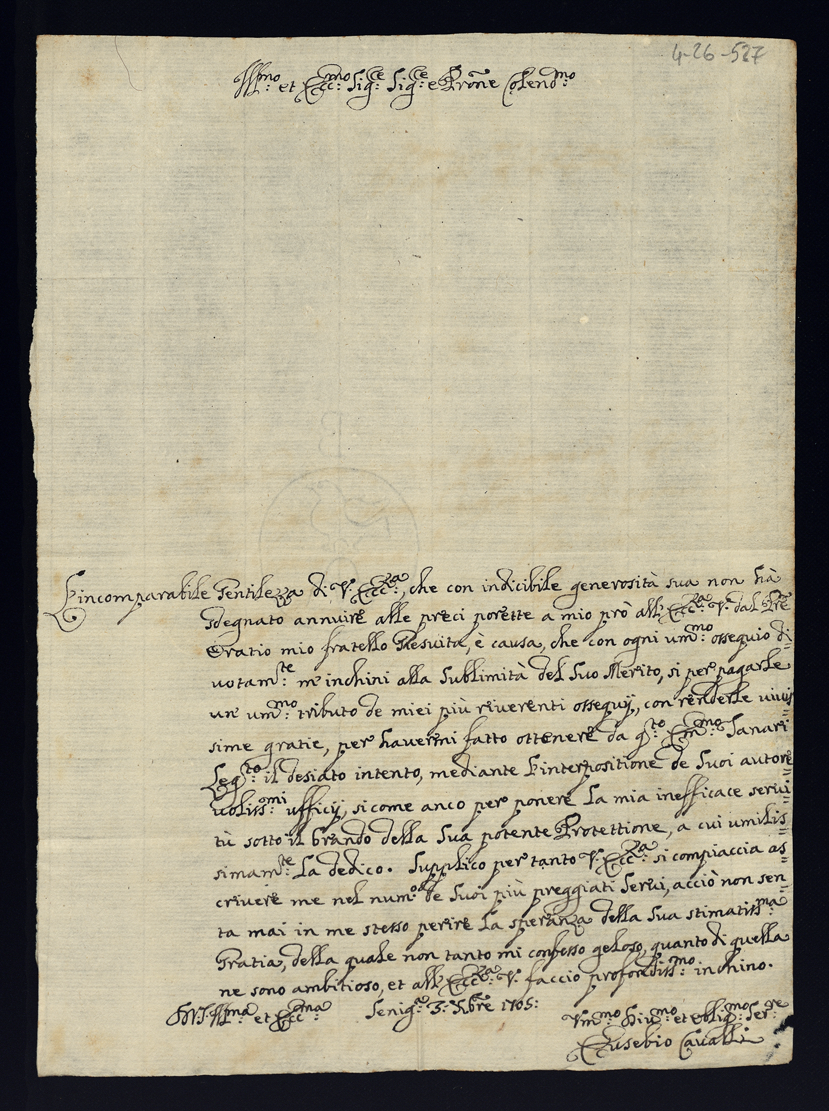 4-26-527
Ill:mo et Ecc:mo Sig:re Sig:re e Prone Colend:mo
L'incomparabile Gentilezza di V. Ecc:za, che con indicibile generosità sua non hà
sdegnato annuire alle preci porette a mio prò all'Ecc:za V. dal Pre
Oratio mio fratello Giesuita, è causa, che con ogni um:mo ossequio di=
votam:te m'inchini alla sublimità del Suo Merito, si per pagarle
un um:mo tributo de miei più riverenti ossequij, con renderle vivis
sime gratie, per havermi fatto ottenere da q:to Em:mo Sanari
Leg:to il desiato intento, mediante l'interpositione de Suoi autore=
voliss:mi ufficij, si come anco per ponere la mia inefficace servi=
tù sotto il brando della Sua potente Protettione, a cui umilis=
simam:te la dedico. Supplico per tanto V. Ecc:za si compiaccia as=
crivere me nel num:o de Suoi più preggiati Servi, acciò non sen=
ta mai in me stesso perire la speranza della Sua stimatiss:ma
Gratia, della quale non tanto mi confesso geloso, quanto di quella
ne sono ambitioso, et all'Ecc:za V. faccio profondiss:mo inchino.
Di V. S. Ill:ma et Ecc:ma Senig:a 3: Xbre 1705:
Um:mo Div:mo et oblig:mo Ser:re
Eusebio Cavalli